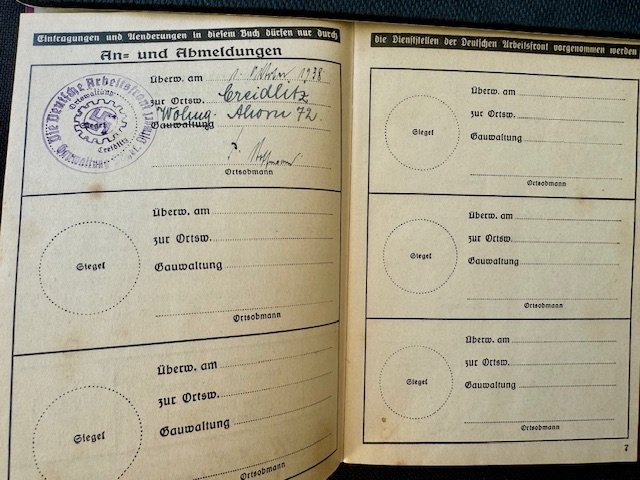 Eintragungen und Aenderungen in diesem Buch dürfen nur durch
An= und Abmeldungen
Die Deutsche Arbeitsfront
Ortswaltung
Siegel
Creidlitz
Gauwaltung
Überw. am 1. Oktober 1938
zur Ortsw. Creidlitz
Gauwaltung Wohng. Ahorn 72.
Ortsobmann
Siegel
Überw. am
zur Ortsw.
Gauwaltung
Ortsobmann
Siegel
Überw. am
zur Ortsw.
Gauwaltung
Ortsobmann
die Dienststellen der Deutschen Arbeitsfront vorgenommen werden
Siegel
Überw. am
zur Ortsw.
Gauwaltung
Ortsobmann
Siegel
Überw. am
zur Ortsw.
Gauwaltung
Ortsobmann
Siegel
Überw. am
zur Ortsw.
Gauwaltung
Ortsobmann
7